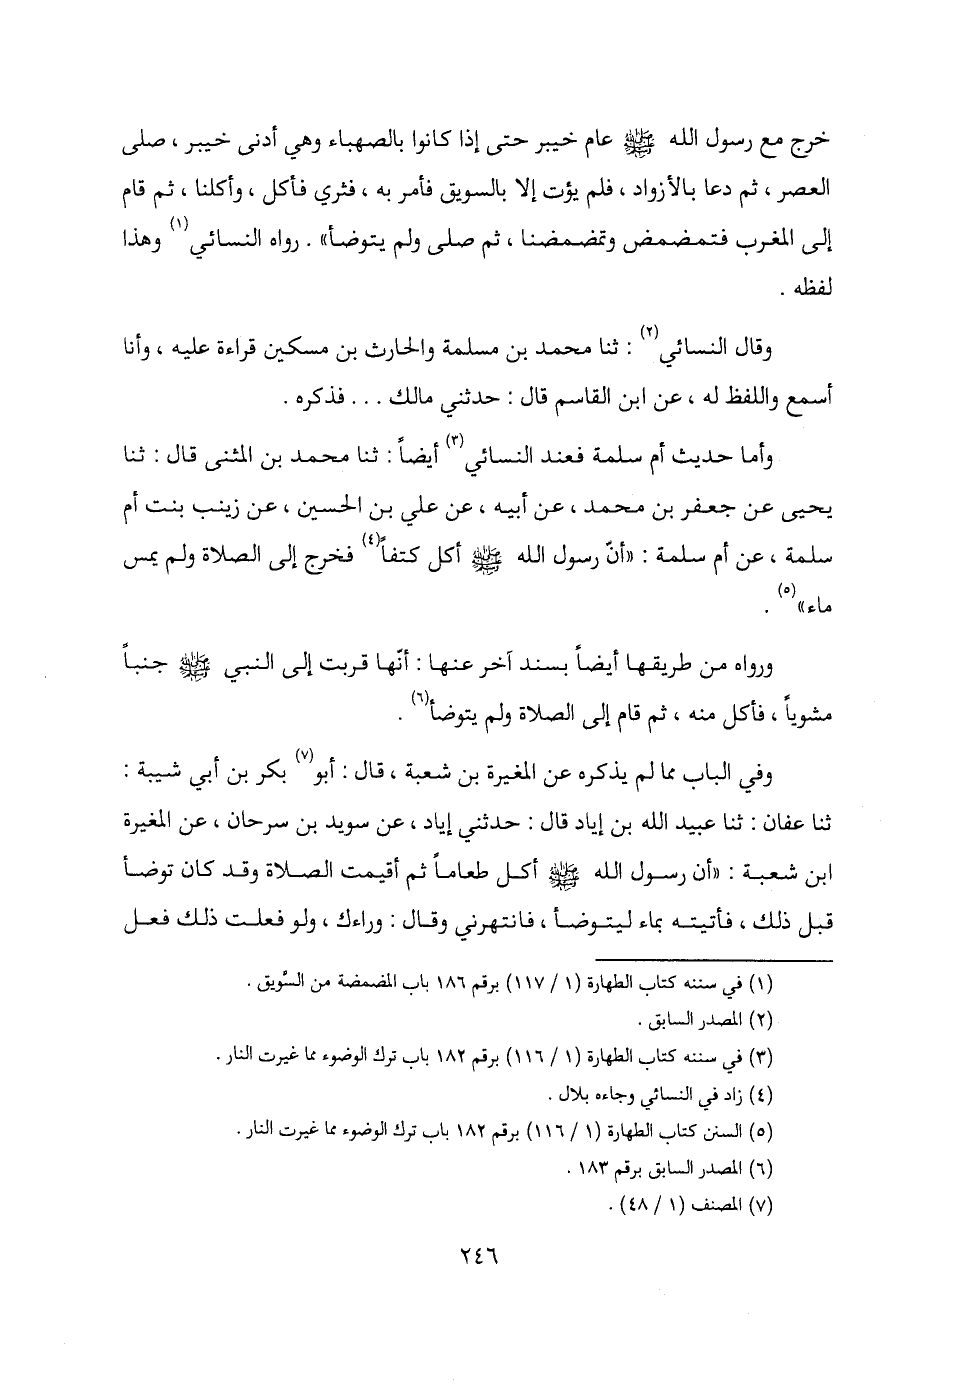 خرج مع رسول الله ﷺ عام خيبر حتى إذا كانوا بالصهباء وهي أدنى خيبر ، صلى
العصر ، ثم دعا بالأزواد ، فلم يؤت إلا بالسويق فأمر به ، فثري فأكل ، وأكلنا ، ثم قام
إلى المغرب فتمضمض وتمضمضنا ، ثم صلى ولم يتوضأ» . رواه النسائي(١) وهذا
لفظه .
وقال النسائي(٢) : ثنا محمد بن مسلمة والحارث بن مسكين قراءة عليه ، وأنا
أسمع واللفظ له ، عن ابن القاسم قال : حدثني مالك ... فذكره .
وأما حديث أم سلمة فعند النسائي(٣) أيضاً : ثنا محمد بن المثنى قال : ثنا
يحيى عن جعفر بن محمد ، عن أبيه ، عن علي بن الحسين ، عن زينب بنت أم
سلمة ، عن أم سلمة : «أنّ رسول الله ﷺ أكل كتفاً(٤) فخرج إلى الصلاة ولم يمس
ماء»(٥) .
ورواه من طريقها أيضاً بسند آخر عنها : أنّها قربت إلى النبي ﷺ جنباً
مشوياً ، فأكل منه ، ثم قام إلى الصلاة ولم يتوضأ(٦) .
وفي الباب مما لم يذكره عن المغيرة بن شعبة ، قال : أبو(٧) بكر بن أبي شيبة :
ثنا عفان : ثنا عبيد الله بن إياد قال : حدثني إياد ، عن سويد بن سرحان ، عن المغيرة
ابن شعبة : «أن رسول الله ﷺ أكل طعاماً ثم أقيمت الصلاة وقد كان توضأ
قبل ذلك ، فأتيته بماء ليتوضأ ، فانتهرني وقال : وراءك ، ولو فعلت ذلك فعل
(١) في سننه كتاب الطهارة (١ / ١١٧) برقم ١٨٦ باب المضمضة من السَّويق .
(٢) المصدر السابق .
(٣) في سننه كتاب الطهارة (١ / ١١٦) برقم ١٨٢ باب ترك الوضوء مما غيرت النار .
(٤) زاد في النسائي وجاءه بلال .
(٥) السنن كتاب الطهارة (١ / ١١٦) برقم ١٨٢ باب ترك الوضوء مما غيرت النار .
(٦) المصدر السابق برقم ١٨٣ .
(٧) المصنف (١ / ٤٨) .
٢٤٦